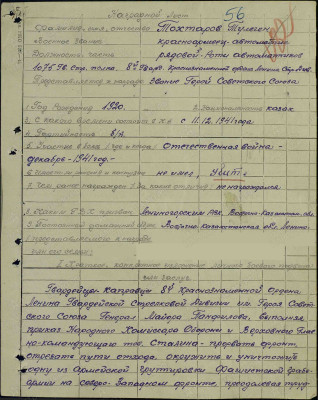 Наградной лист 56
Фамилия, имя, отчество Тохтаров Тулеген
Военное звание красноармеец-автоматчик
Должность, часть рядовой роты автоматчиков
1075 Гв. стр. полка, 8й Гвард. Краснознаменной ордена Ленина стр. див.
Представляется к награде звание Герой Советского Союза
1. Год рождения 1920 2. Национальность казах
3. С какого времени состоит в К.А. с 11.12.1941 года
4. Партийность б/п
5. Участие в боях Отечественная война -
декабрь - 1941 год. -
6. не имел, Убит
7. Чем ранее награжден не награждался
1. Каким РВК призван Лениногорским РВК, Восточно-Казахстан. обл.
2. домашний адрес Восточно-Казахстанская обл. Ленино-
представляемого к награде
Гвардейцы Капрову 8й Краснознаменной Ордена
Ленина Гвардейской Стрелковой Дивизии им. Героя Совет-
ского Союза Генерал Майора Панфилова, выполняя
приказ Народного Комиссара Обороны и Верховного Глав-
но-командующего тов. Сталина - прорвать фронт,
отрезать пути отхода, окружить и уничтожить
одну из Армейской группировки Фашистской
армии на северо-Западном фронте, преодолевая труд-